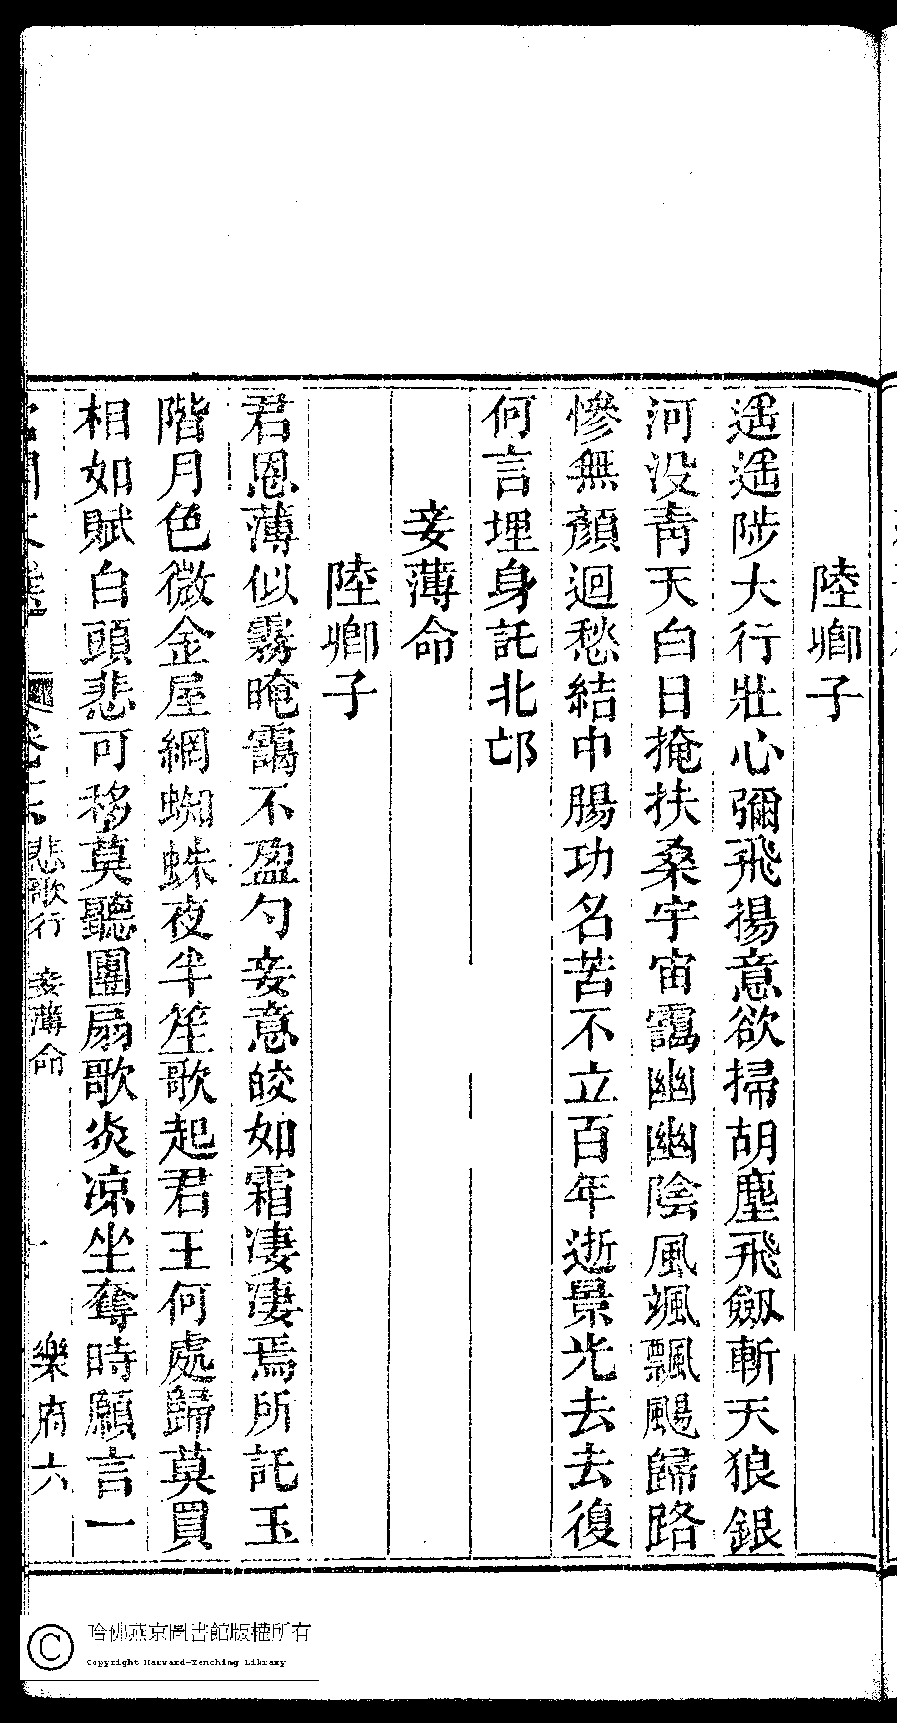 陸卿子
遥遥陟大行壯心彌飛揚意欲掃胡塵飛劔斬天狼銀
河没靑天白日掩扶桑宇宙靄幽幽陰風颯飄颺歸路
慘無顏迴愁結中腸功名苦不立百年逝景光去去復
何言埋身託北邙
妾薄命
陸卿子
君恩薄似霧晻靄不盈勺妾意皎如霜凄凄焉所託玉
階月色微金屋網蜘蛛夜半笙歌起君王何處歸莫買
相如賦白頭悲可移莫聽團扇歌炎凉坐奪時願言一
悲歌行 妾薄命
樂府六
哈佛燕京圖書館版權所有
Copyright Harvard-Yenching Library